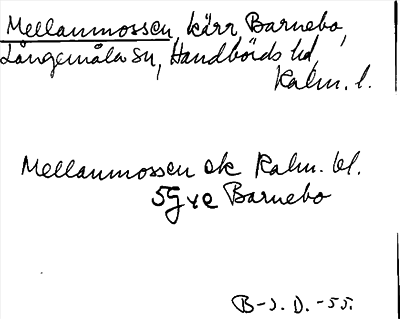 Mellanmossen, kärr, Barnebo,
Långemåla sn, Handbörds hd,
Kalm. l.
Mellanmossen ek Kalm. bl.
5G ve Barnebo
B-J. D. -55.